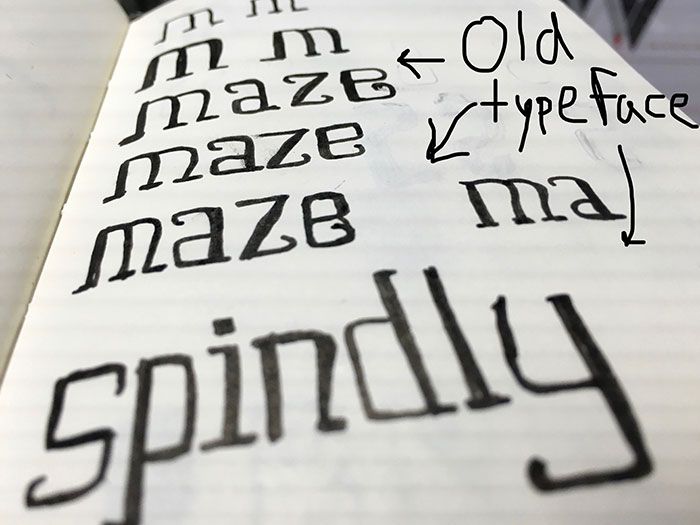 m m
m m
maze
maze
maze
ma
spindly
Old
typeface